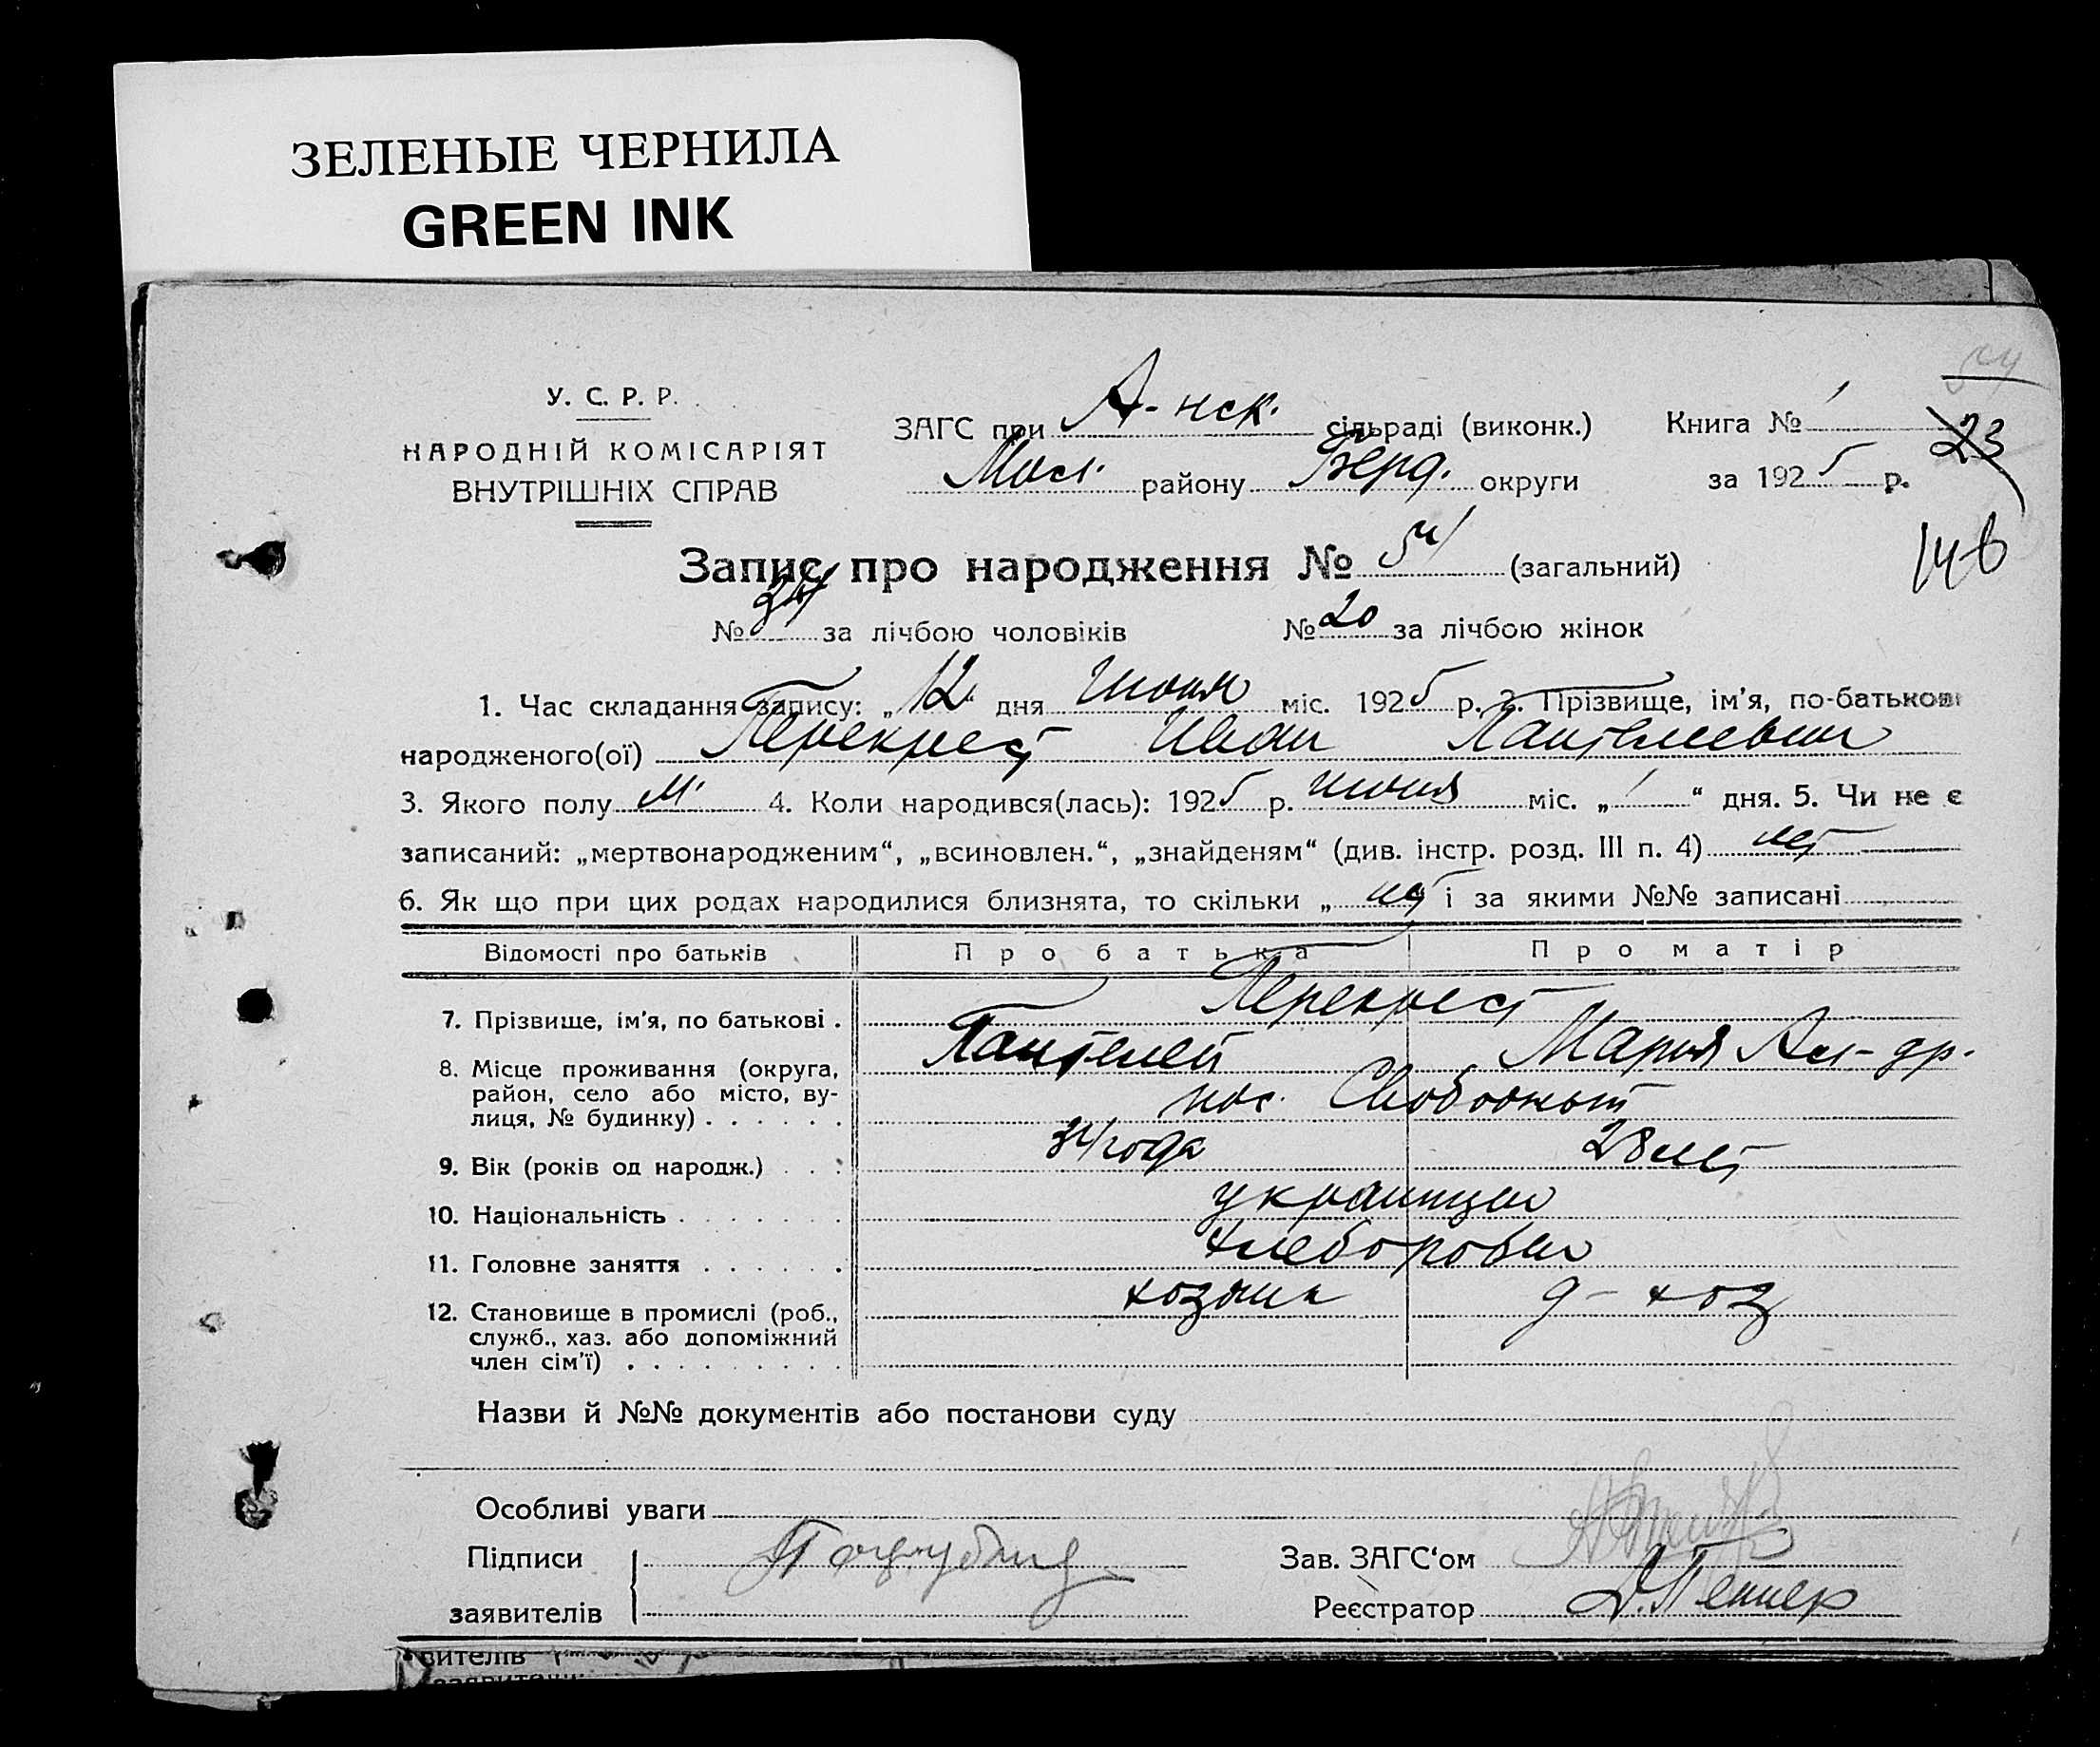 ЗЕЛЕНЫЕ ЧЕРНИЛА
GREEN INK
У. С. Р. Р.
НАРОДНІЙ КОМІСАРІЯТ
ВНУТРІШНІХ СПРАВ
ЗАГС при А-нск. сільраді (виконк.) Книга № 1
23
Мол. району Берд. округи за 1925 р.
146
Запис про народження № 54 (загальний)
№ 34 за лічбою чоловіків № 20 за лічбою жінок
1. Час складання запису: „12“ дня Июня міс. 1925 р. 2. Прізвище, ім'я, по-батькові
народженого(ої) Перекрест Иван Пантелеевич
3. Якого полу м. 4. Коли народився(лась): 1925 р. июня міс. „1“ дня. 5. Чи не є
записаний: „мертвонародженим“, „всиновлен.“, „знайденям“ (див. інстр. розд. III п. 4) нет
6. Як що при цих родах народилися близнята, то скільки „ нет і за якими №№ записані
Відомості про батьків Про батька Про матір
7. Прізвище, ім'я, по батькові . Перекрест
Пантелей Мария Ал-др.
8. Місце проживання (округа, район, село або місто, вулиця, № будинку) . . . . . . пос.
9. Вік (років од народж.) . . . 34 года 28 лет
10. Національність . . . . . . украинцы
11. Головне заняття . . . . . . хлеборобы
12. Становище в промислі (роб., служб., хаз. або допоміжний член сім'ї) . . . . . . . . . хозяин д-хоз
Назви й №№ документів або постанови суду
Особливі уваги
Підписи
Зав. ЗАГС'ом
заявителів
Реєстратор Д. Пеннер
вителів